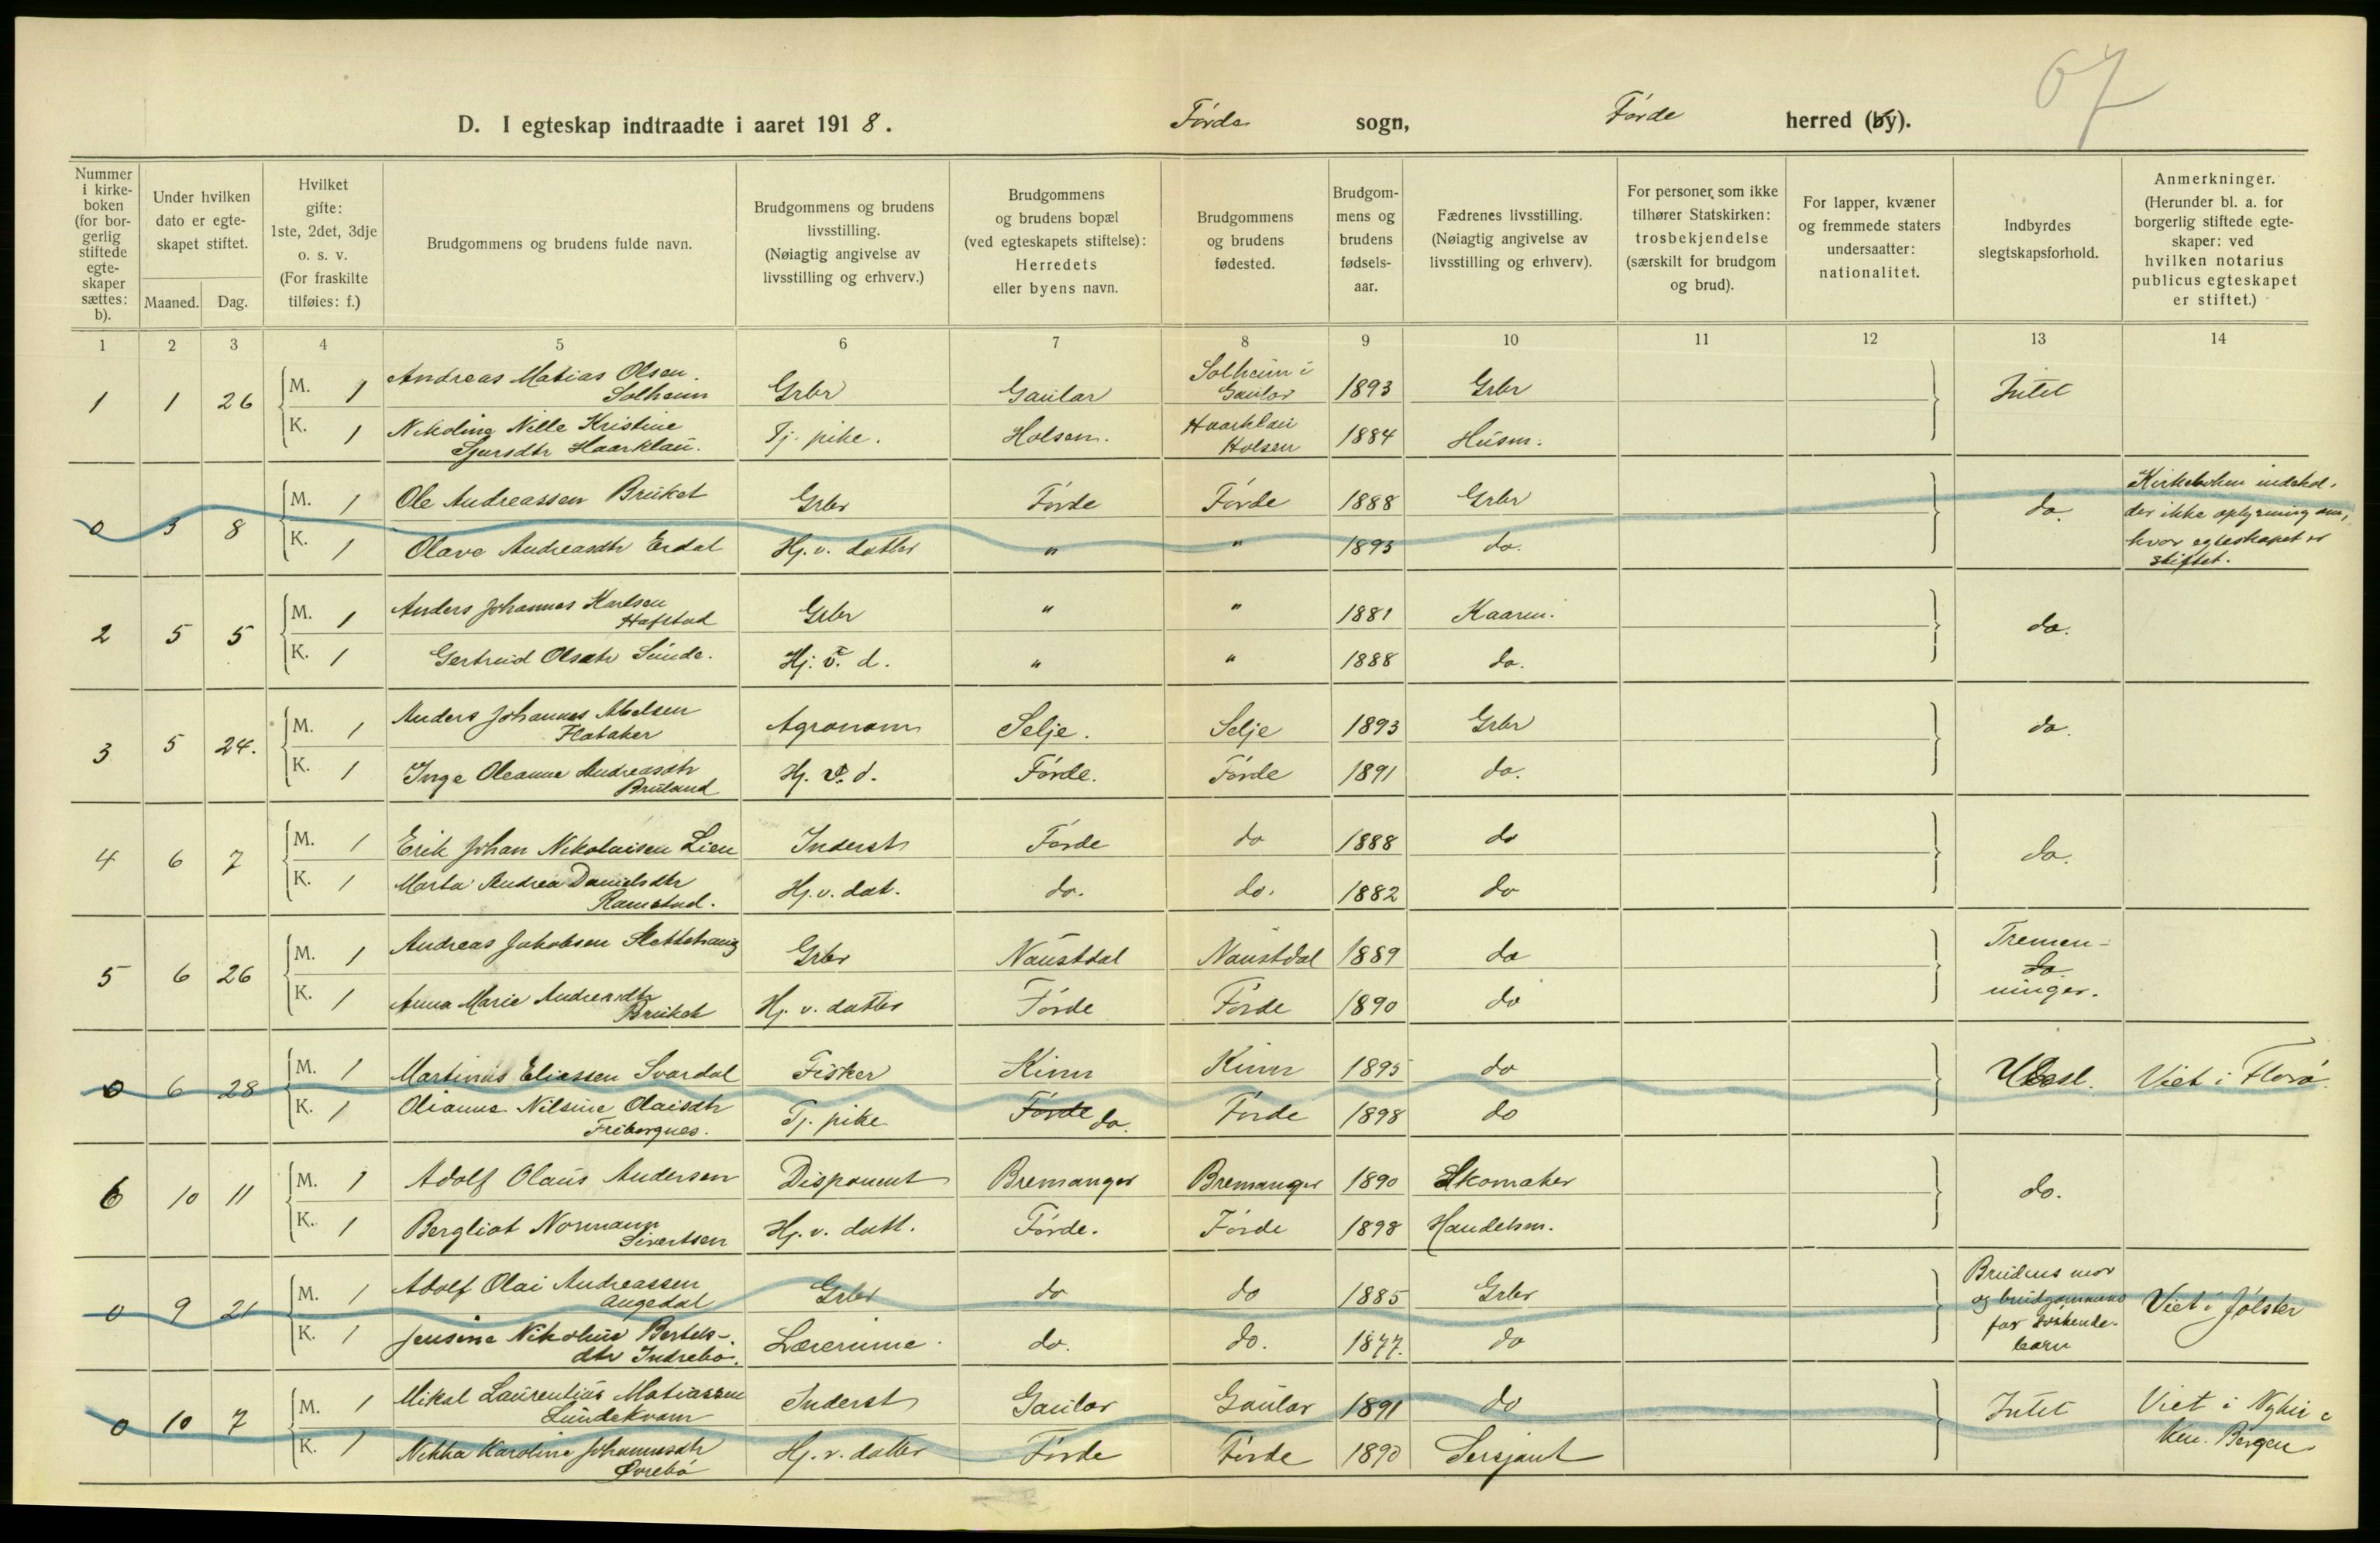 67
D. I egteskap indtraadte i aaret 1918. Førde sogn, Førde herred (by).
Nummer i kirke-boken (for bor-gerlig stiftede egte-skaper sættes: b).
Under hvilken dato er egte-skapet stiftet.
Maaned. Dag.
Hvilket gifte: 1ste, 2det, 3dje o. s. v. (For fraskilte tilføies: f.)
Brudgommens og brudens fulde navn.
Brudgommens og brudens livsstilling. (Nøiagtig angivelse av livsstilling og erhverv.)
Brudgommens og brudens bopæl (ved egteskapets stiftelse): Herredets eller byens navn.
Brudgommens og brudens fødested.
Brudgom-mens og brudens fødsels-aar.
Fædrenes livsstilling. (Nøiagtig angivelse av livsstilling og erhverv).
For personer som ikke tilhører Statskirken: trosbekjendelse (særskilt for brudgom og brud).
For lapper, kvæner og fremmede staters undersaatter: nationalitet.
Indbyrdes slegtskapsforhold.
Anmerkninger. (Herunder bl. a. for borgerlig stiftede egte-skaper: ved hvilken notarius publicus egteskapet er stiftet.)
1 2 3 4 5 6 7 8 9 10 11 12 13 14
1 1 26 M. 1 Andreas Matias Olsen Solheim Grbr Gaular Solheim i Gaular 1893 Grbr Intet
K. 1 Nikoline Nille Kristine Sjursdtr Haarklau. Tj. pike. Holsen. Haarklau Holsen 1884 Husm.
0 3 8 M. 1 Ole Andreassen Bruket Grbr Førde Førde 1888 Grbr do. Kirkeboken indehol-
der ikke oplysning om,
hvor egteskapet er
stiftet.
K. 1 Olave Andreasdtr Erdal Hj. v. datter " " 1893 do.
2 5 5 M. 1 Anders Johannes Karlsen Hafstad Grbr " " 1881 Kaarm. do.
K. 1 Gertruid Olsdtr Sunde. Hj. v. d. " " 1888 do.
3 5 24. M. 1 Anders Johannes Abelsen Flataker Agronom Selje. Selje 1893 Grbr do.
K. 1 Inga Oleanna Andreasdtr Bruland Hj. v. d. Førde. Førde 1891 do.
4 6 7 M. 1 Erik Johan Nikolaisen Lien Inderst Førde do 1888 do do.
K. 1 Marta Andrea Danielsdtr Ramstad. Hj. v. dat. do. do. 1882 do
5 6 26 M. 1 Andreas Jakobsen Slettehaug Grbr Naustdal Naustdal 1889 do Tremen-
do.
ninger.
K. 1 Anna Marie Andreasdtr Bruket Hj. v. datter Førde Førde 1890 do
0 6 28 M. 1 Martinus Eliassen Svardal Fisker Kinn Kinn 1895 do Ubesl. Viet i Florø.
K. 1 Olianna Nilsine Olaisdtr Fribergnes. Tj. pike Førde do. Førde 1898 do
6 10 11 M. 1 Adolf Olaus Andersen Disponent Bremanger Bremanger 1890 Skomaker do.
K. 1 Bergliot Normann Sivertsen Hj. v. datt. Førde. Førde 1898 Handelsm.
0 9 21 M. 1 Adolf Olai Andreassen Angedal Grbr do do 1885 Grbr Brudens mor
og brudgommens
far søskende-
barn Viet i Jølster
K. 1 Jensine Nikoline Bertels-
dtr Indrebø. Lærerinne do. do. 1877. do
0 10 7 M. 1 Mikal Laurentius Matiassen Lundekvam Inderst Gaular Gaular 1891 do Intet Viet i Nykir-
ken. Bergen
K. 1 Nikka Karoline Johannesdtr Øvrebø Hj. v. datter Førde Førde 1890 Sersjant